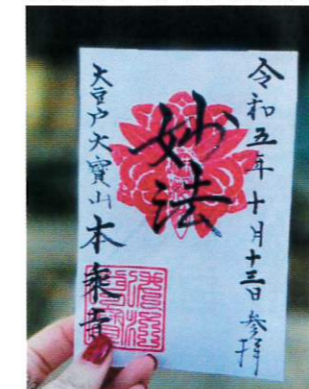 令和五年十月十三日 参拝
妙法
大豆戸大寳山本乘寺